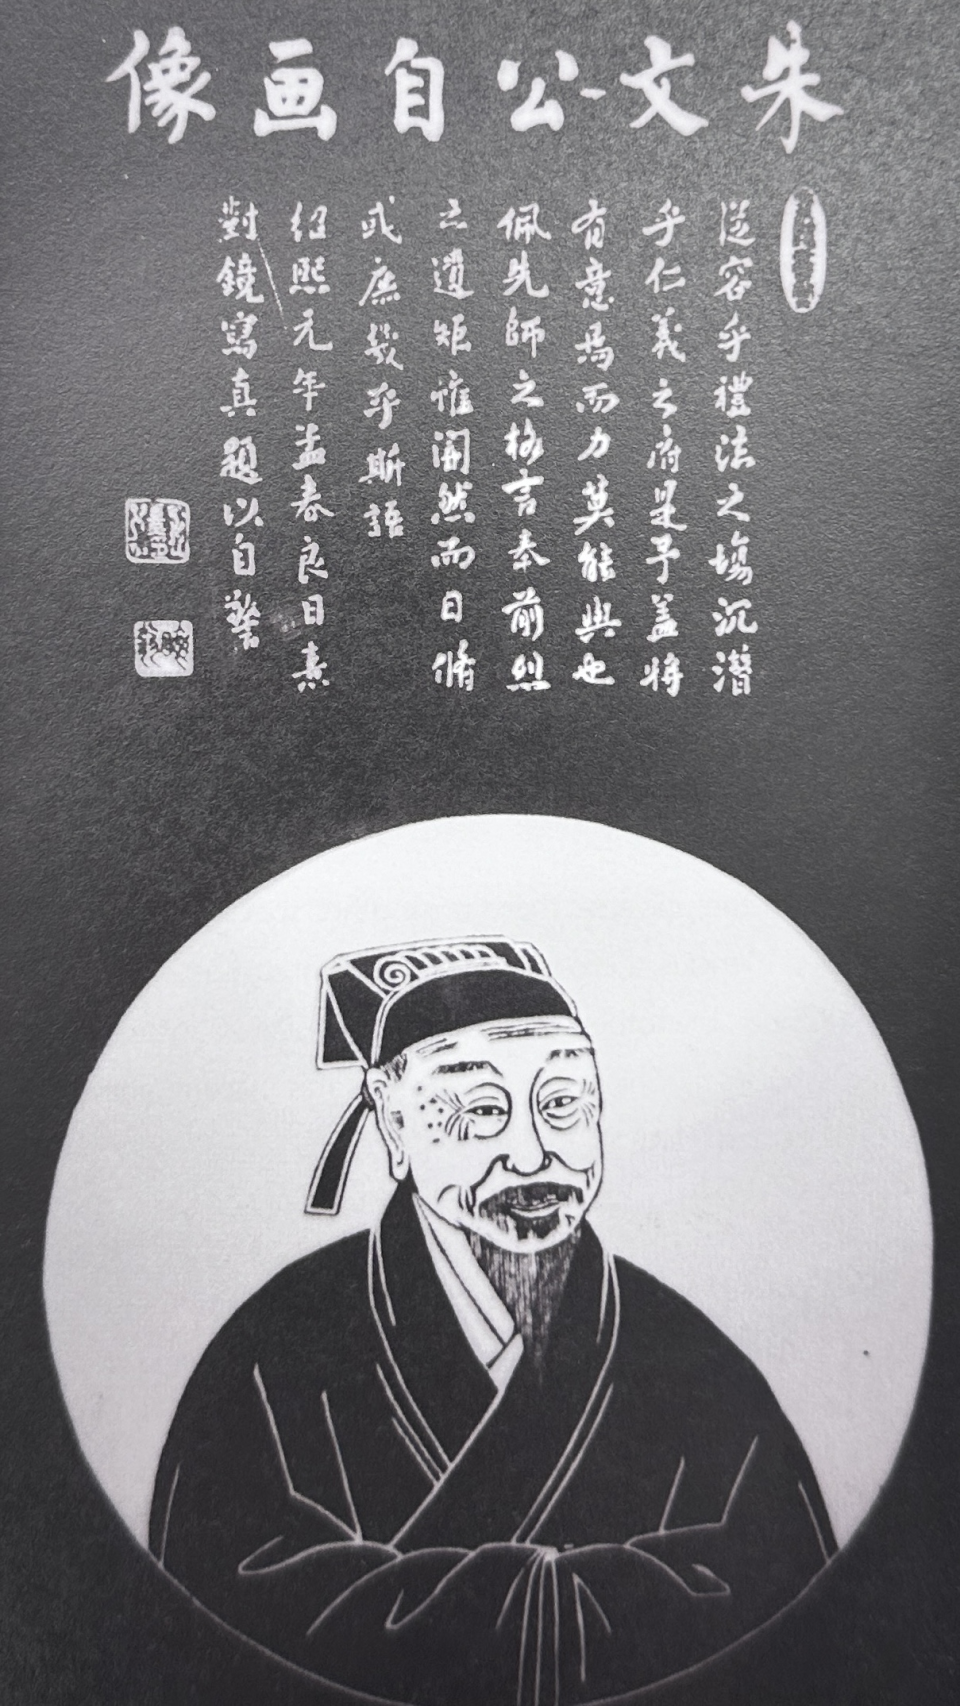 朱文公自画像
從容乎禮法之塲沉潛
乎仁義之府是予盖將
有意焉而力莫能與也
佩先師之格言奉前烈
之遺矩惟闇然而日脩
或庶幾乎斯語
紹熙元年孟春良日熹
對鏡寫真題以自警